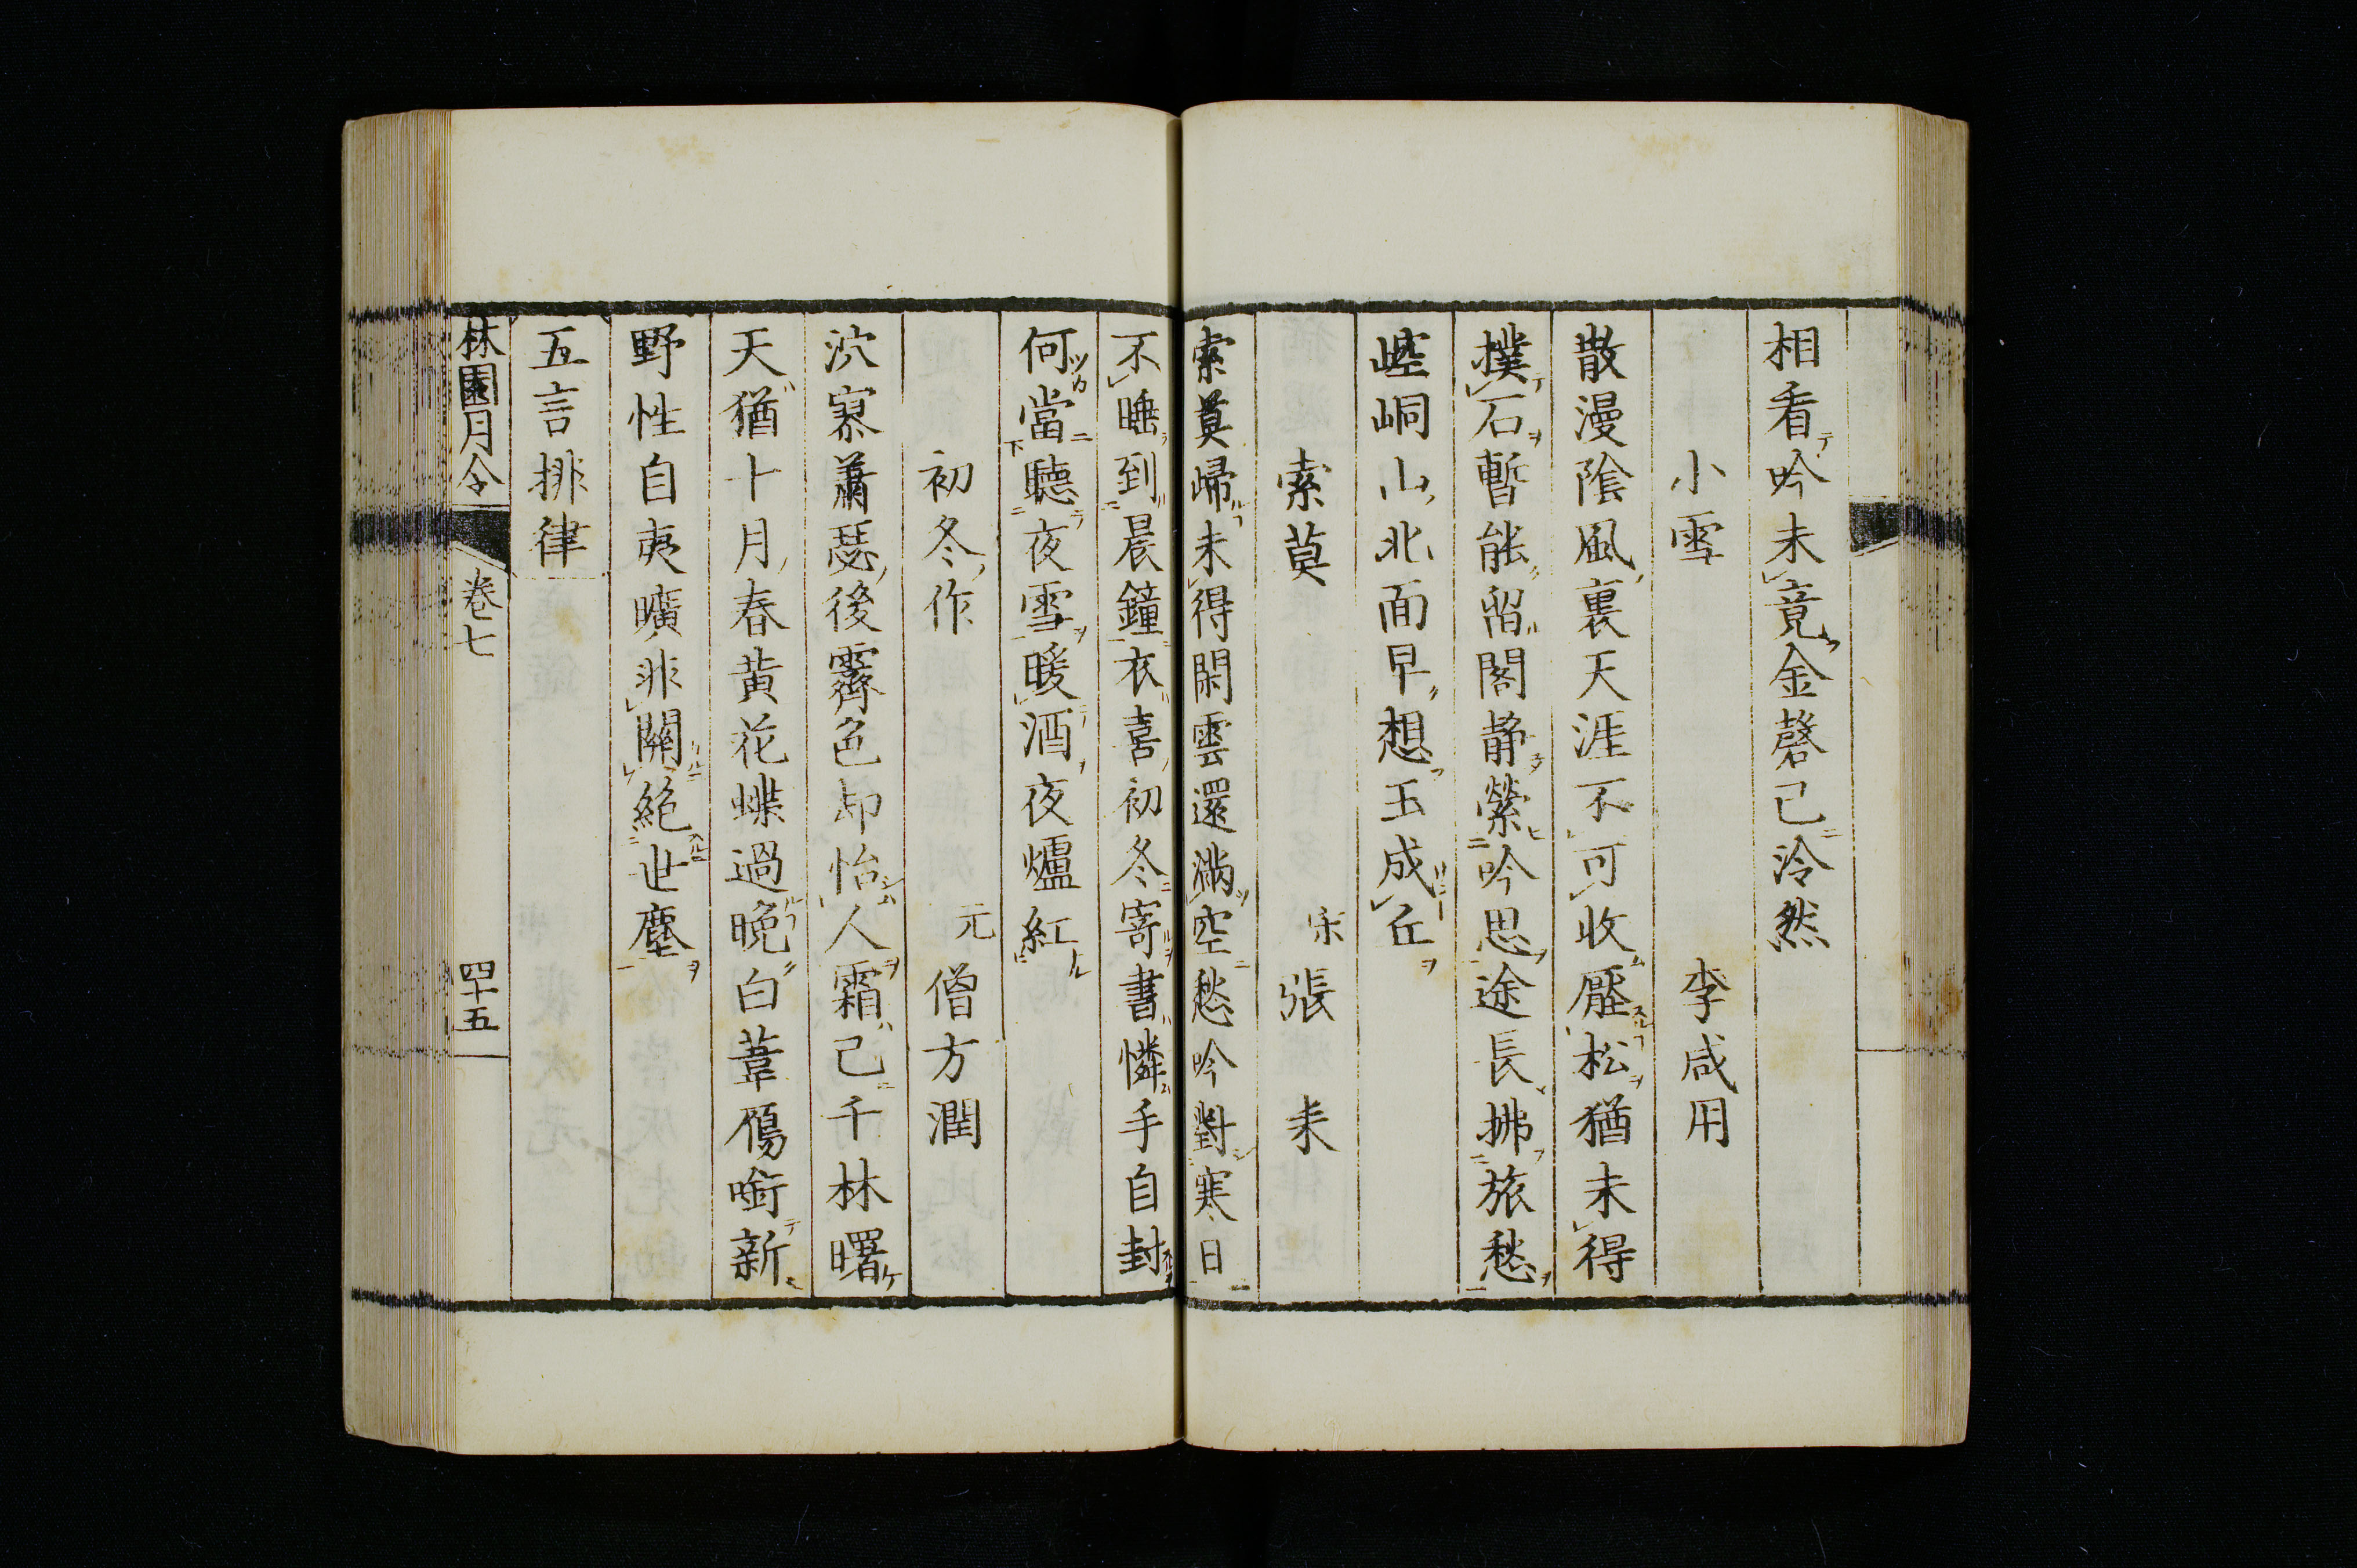 相看吟未竟金磬已泠然
小雪 李咸用
散漫陰風裏天涯不可收壓松猶未得
撲石暫能留閣靜縈吟思途長拂旅愁
崆峒山北面早想玉成丘
索莫 宋 張耒
索莫歸未得閑雲還滿空愁吟對寒日
不睡到晨鐘衣喜初冬寄書憐手自封
何當聽夜雪暖酒夜爐紅
初冬作 元 僧方潤
泬寥蕭瑟後霽色却怡人霜已千林曙
天猶十月春黃花蝶過晚白葦鴈銜新
野性自夷曠非關絕世塵
五言排律
林園月令 卷七 四十五